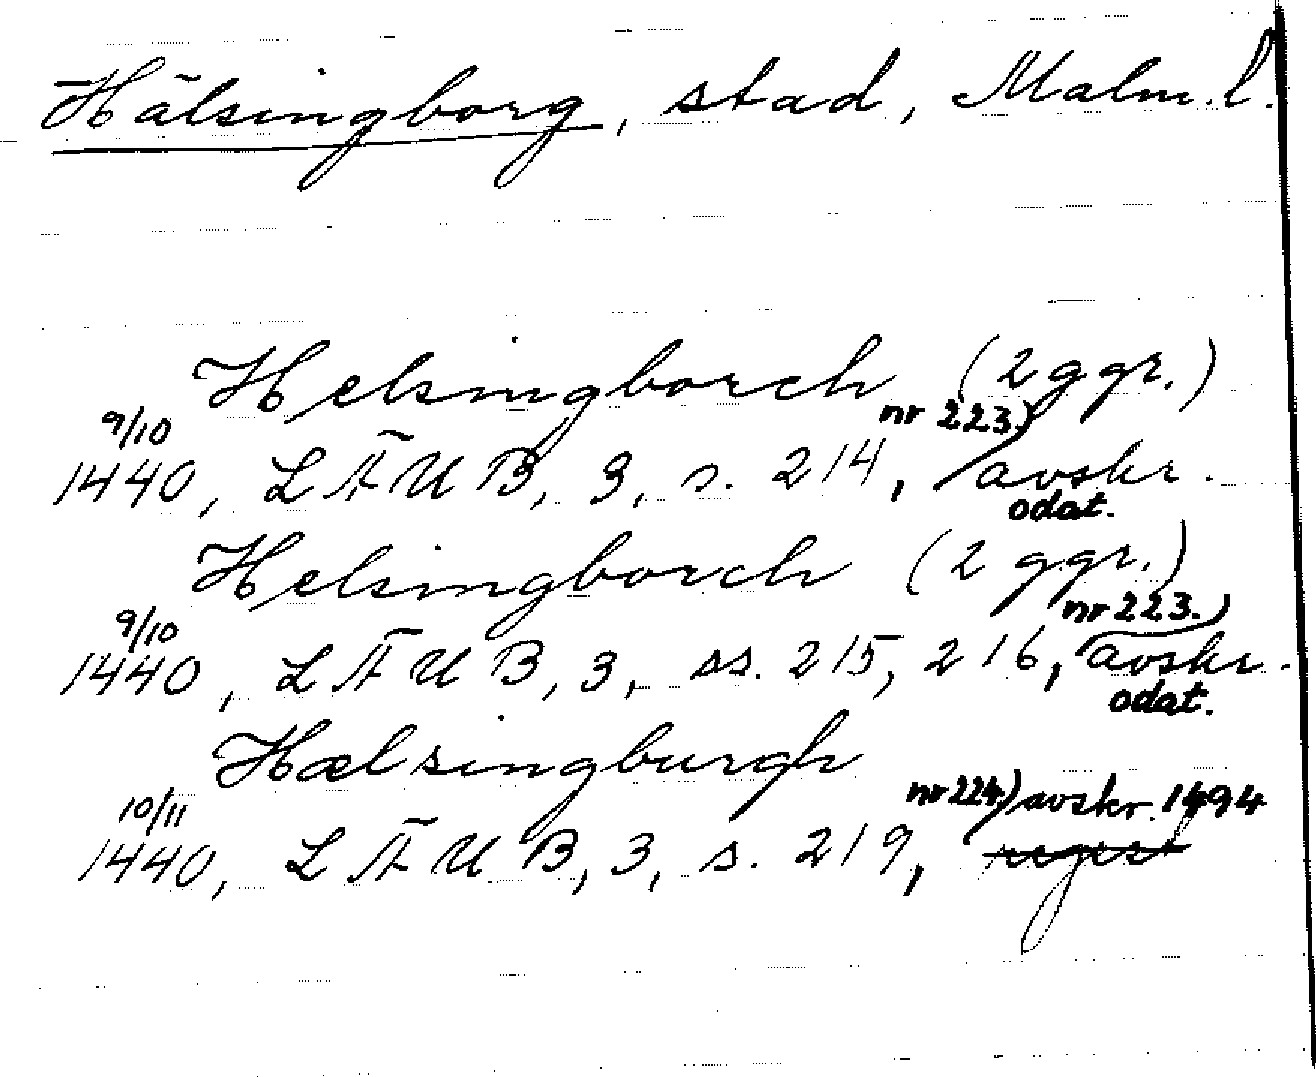 Hälsingborg, stad, Malm.l.
Helsingborch (2 ggr.)
9/10 nr 223.)
1440, LÄUB, 3, s. 214, avskr.
odat.
Helsingborch (2 ggr.)
9/10 nr 223.)
1440, LÄUB, 3, ss. 215, 216, avskr.
odat.
Hælsingburgh
10/11 nr 224.) avskr. 1494
1440, LÄUB, 3, s. 219, regest